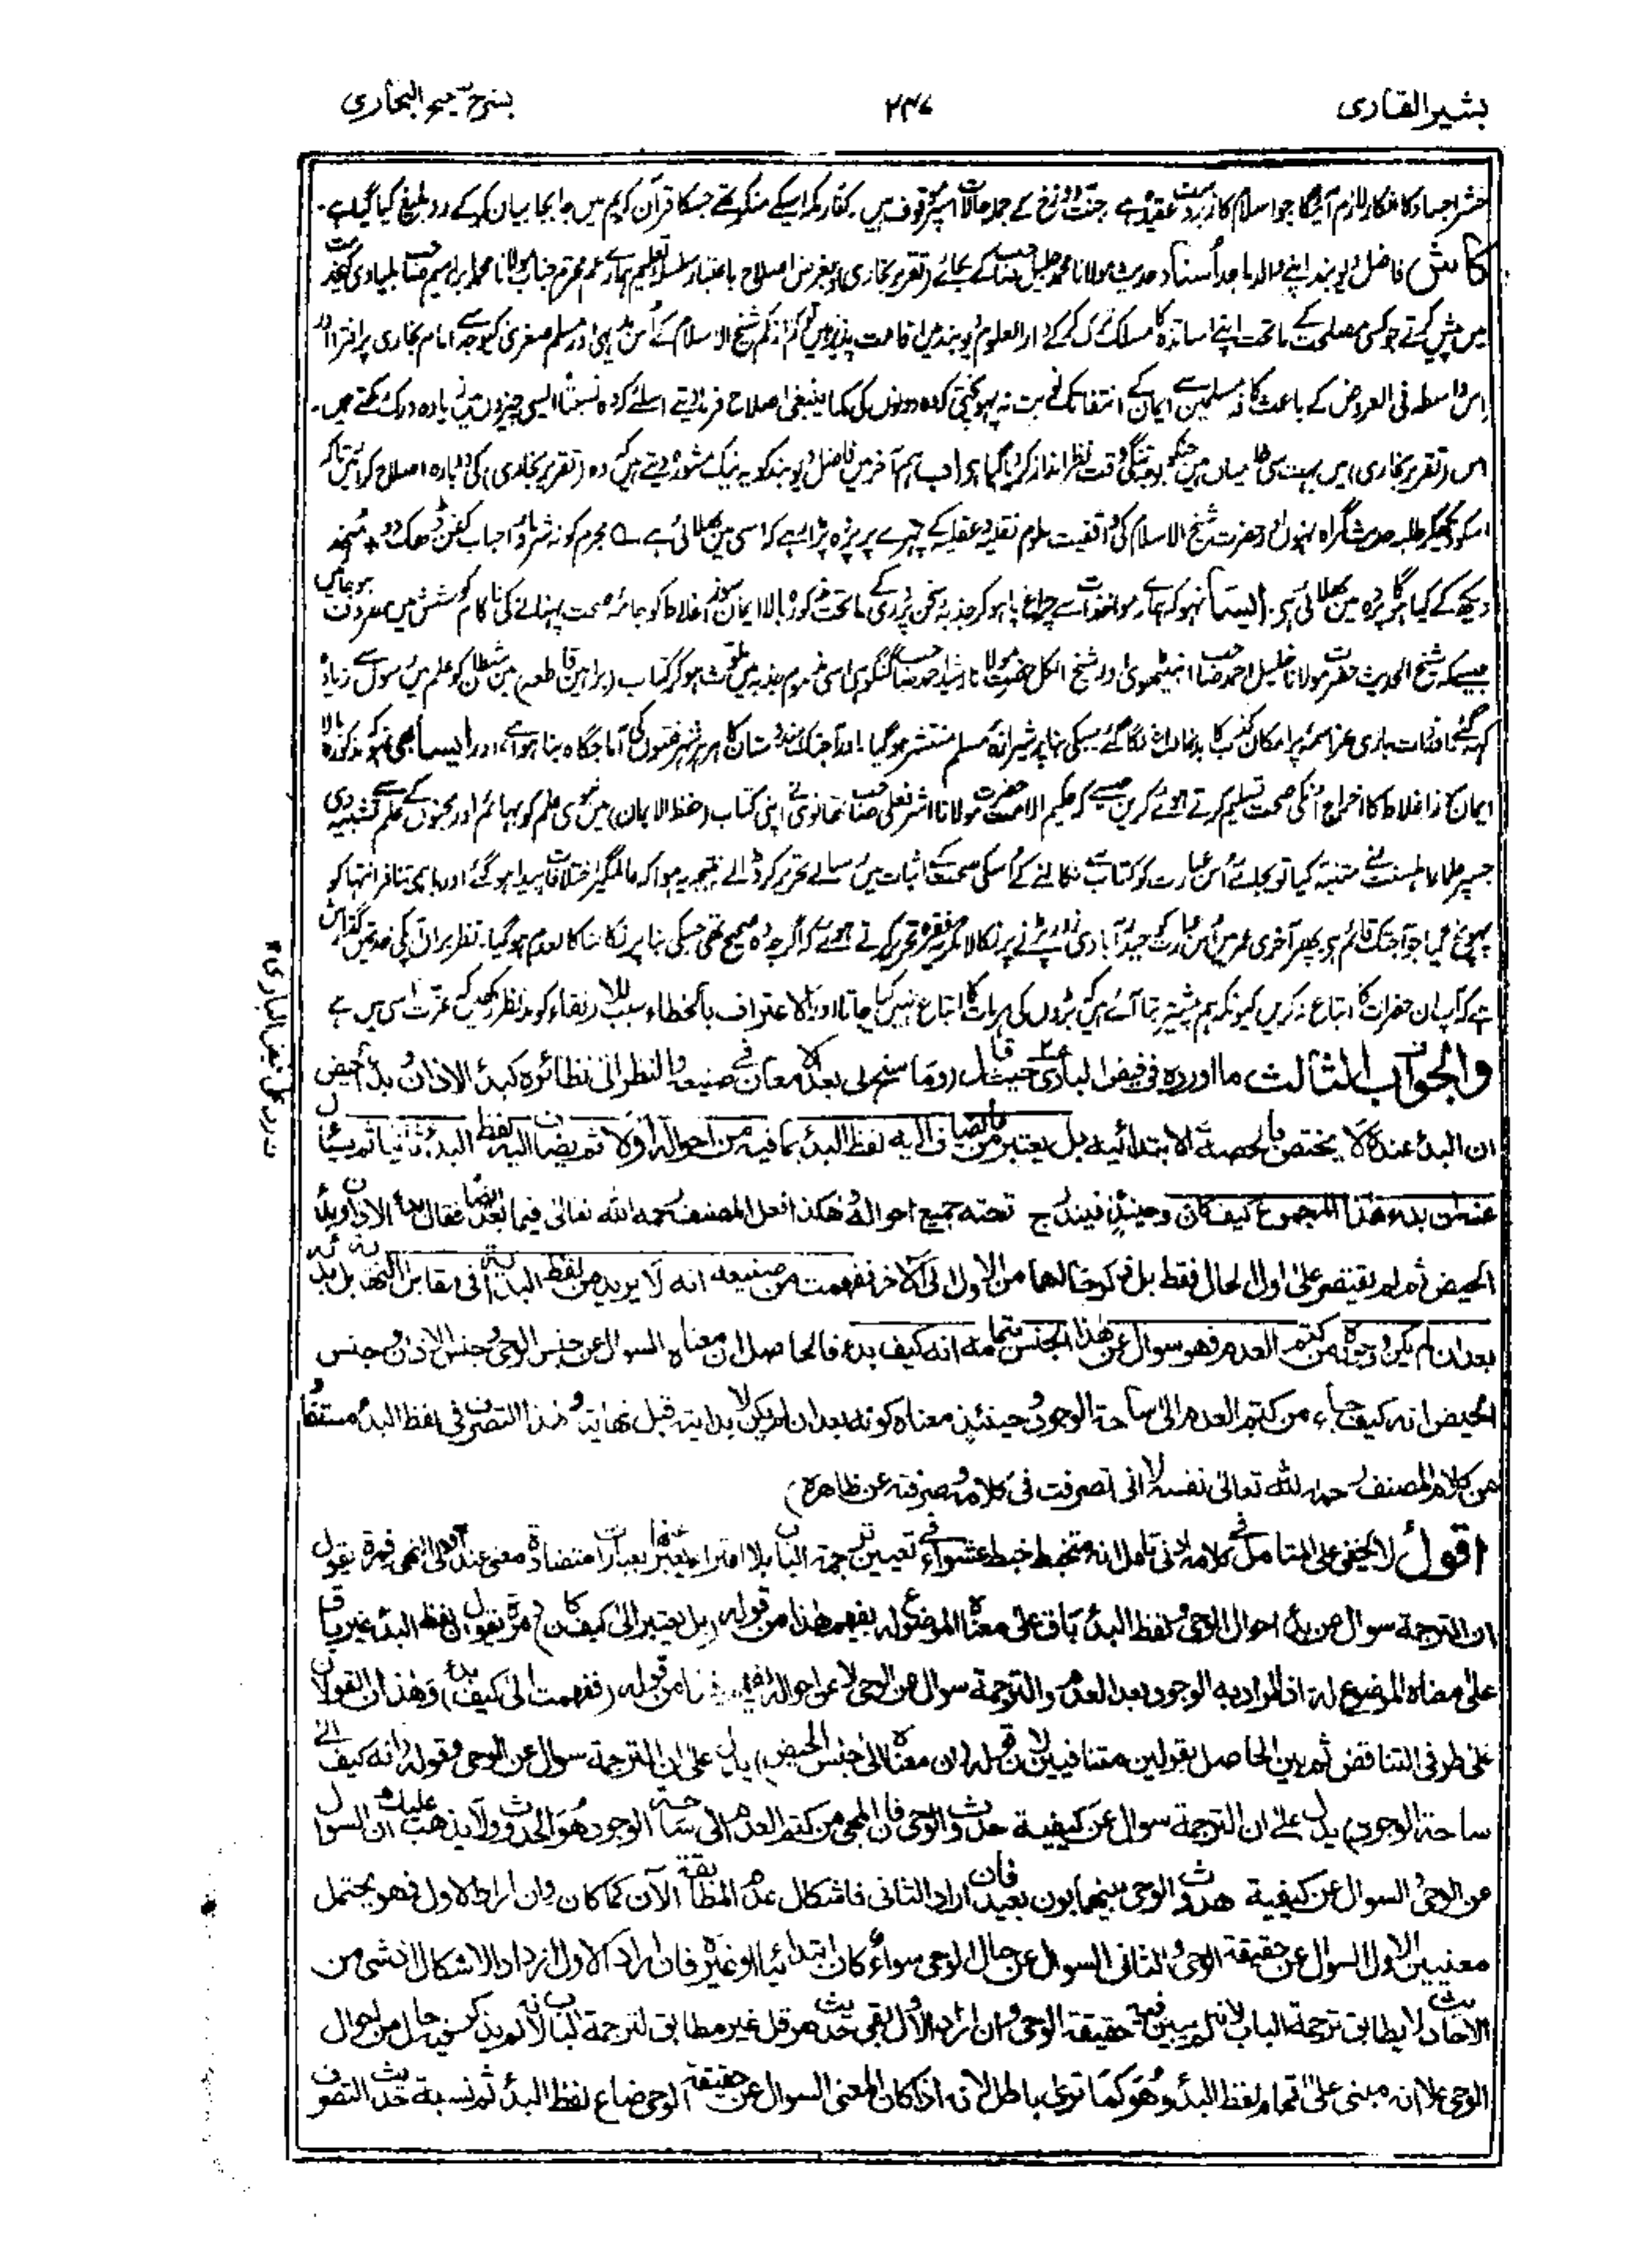 بشیر القاری ۲۴۷ بشرح صحیح البخاری
حشر اجساد کا انکار لازم آئیگا جو اسلام کا زبردست عقیدہ ہے جنت و دوزخ کے جملہ حالات اسپر موقوف ہیں۔ کفار مکہ اسکے منکر تھے جسکا قرآن کریم میں جا بجا بیان کرکے رد بلیغ کیا گیا ہے۔
کاش فاضل دیوبند اپنے والد ماجد استاد حدیث مولانا محمد جلیل صاحب کے بجائے (تقریر بخاری) بغرض اصلاح باعتبار سلسلۂ تعلیم ہمارے عم محترم جناب مولانا محمد ابراہیم صاحب بلیاوی کی خدمت
میں پیش کرتے جو کسی مصلحت کے ماتحت اپنے اساتذہ کا مسلک ترک کرکے دارالعلوم دیوبند میں اقامت پذیر ہیں تو کم از کم شیخ الاسلام کے اور مسلم صغری کیوجہ سے امام بخاری پر افترا اور
اس واسطہ فی العروض کے باعث کافہ مسلمین سے ایمان کے انتفا تک نوبت نہ پہونچتی کہ وہ دونوں کی کما ینبغی اصلاح فرما دیتے اسلئے کہ وہ نسبتاً ایسی چیزوں میں زیادہ درک رکھتے ہیں۔
اس (تقریر بخاری) میں بہت سی خامیاں ہیں جنکو بوجہ تنگی وقت نظر انداز کر دیا گیا ہے اب ہم آخر میں فاضل دیوبند کو یہ نیک مشورہ دیتے ہیں کہ وہ (تقریر بخاری) کی دوبارہ اصلاح کرائیں تاکہ
اسکو دیکھکر طلبہ حدیث گمراہ نہوں اور حضرت شیخ الاسلام کی واقفیت علوم نقلیہ و عقلیہ کے چہرے پر پردہ پڑا رہے کہ اسی میں بھلائی ہے ؎ مجرم کو نہ شرماؤ احباب کفن ڈھک دو + منہ
دیکھ کے کیا ہوگا پردہ میں بھلائی ہے۔ ایسا نہو کہ ہمارے مواخذات سے چراغ پا ہو کر جذبۂ سخن پروری کے ماتحت مذکورہ بالا ایمان سوز اغلاط کو جامۂ صحت پہنانے کی ناکام کوشش میں مصروف ہوجائیں
جیسے کہ شیخ الحدیث حضرت مولانا خلیل احمد صاحب انبیٹھوی اور شیخ الکل حضرت مولانا رشید احمد صاحب گنگوہی اسی مذموم جذبہ میں ملوث ہو کر کتاب (براہین قاطعہ) میں شیطان کو علم میں رسول سے زیادہ
کہہ گئے اور ذات باری عز اسمہ پر امکان کذب کا بدنما داغ لگا گئے جسکی بنا پر شیرازۂ مسلم منتشر ہو گیا اور آجتک ہندوستان کا ہر ہر شہر فتنوں کی آماجگاہ بنا ہوا ہے، اور ایسا بھی نہو کہ مذکورہ بالا
ایمان گداز اغلاط کا اخراج انکی صحت تسلیم کرتے ہوئے کریں جیسے کہ حکیم الامت حضرت مولانا اشرفعلی صاحب تھانوی نے اپنی کتاب (حفظ الایمان) میں نبوی علم کو بہائم اور مجنوں کے علم سے تشبیہ دی
جسپر علماء اہلسنت نے متنبہ کیا تو بجائے اس عبارت کو کتاب سے نکالنے کے اسکی صحت کے اثبات میں رسالے تحریر کر ڈالے نتیجہ یہ ہوا کہ عالمگیر اختلافات پیدا ہو گئے اور باہمی تنافر انتہا کو
پہونچ گیا جو آجتک قائم ہے پھر آخری عمر میں اس عبارت کو حیدرآبادی زور پڑنے پر نکالا مگر یہ فقرہ تحریر کرتے ہوئے کہ اگرچہ وہ صحیح تھی جسکی بنا پر نکالنا کالعدم ہو گیا۔ نظر براں آپکی خدمت میں گذارش
ہے کہ آپ ان حضرات کا اتباع نہ کریں کیونکہ ہم پیشتر بتا آئے ہیں کہ بڑوں کی ہر بات کا اتباع نہیں کیا جاتا اور الاعتراف بالخطاء سبب للارتقاء کو مد نظر رکھیں کہ عزت اسی میں ہے
والجواب الثالث ما اورده فی فیض الباری حیث قال (وما سنح لی بعد الامعان فی صنیعہ والنظر الی نظائرہ کبدء الاذان وبدء الحیض
ان البدء عندہ لا یختص بالحصة الابتدائیة بل یعتبر من مضاف الیہ لفظ البدء بما فیہ من احوالہ اولا ثم یضاف الیہ لفظ البدء ثانیا ثم یسئل
عنہ ان بدء ھذا المجموع کیف کان وحینئذ فیندرج تحتہ جمیع احوالہ وھکذا فعل المصنف رحمہ اللہ تعالی فیما بعد ایضا فقال بدء الاذان وبدء
الحیض ثم لم یقتصر علی اول الحال فقط بل ذکر حالھا من الاول الی الآخر ففھمت من صنیعہ انہ لا یرید من لفظ البدایة ما فی مقابل النھایة بل بدء
بعد ان لم یکن وجودہ من کتم العدم فھو سوال عن ھذا الجنس بتمامہ انہ کیف بدء فالحاصل ان معناہ السوال عن جنس الوحی وجنس الاذان وجنس
الحیض انہ کیف جاء من کتم العدم الی ساحة الوجود وحینئذ معناہ کونہ بعد ان لم یکن لا بدایتہ قبل نھایتہ وھذا التصرف فی لفظ البدء مستفاد
من کلام المصنف رحمہ اللہ تعالی نفسہ لا انی تصرفت فی کلامہ وصرفتہ عن ظاھرہ)
اقول لا یخفی علی المتامل فی کلامہ ادنی تامل انہ متخبط خبط عشواء فی تعیین ترجمة الباب بلا امتراء یعبر عنھا بعبارات متضادة معنی عند اولی النھی فمرة یقول
ان الترجمة سوال عن بدء احوال الوحی ولفظ البدء باق علی معناہ الموضوع لہ یفھم ھذا من قولہ (بل یعتبر الی کیف کان) ومرة یقول ان لفظ البدء غیر باق
علی معناہ الموضوع لہ اذ المراد بہ الوجود بعد العدم والترجمة سوال عن الوحی لا عن احوالہ من قولہ (ففھمت الی کیف بدء) وھذان القولان
علی طرفی التناقض ثم بین الحاصل بقولین متنافیین لان قولہ (ان معناہ الی جنس الحیض) یدل علی ان الترجمة سوال عن الوحی وقولہ (انہ کیف الی
ساحة الوجود) یدل علی ان الترجمة سوال عن کیفیة حدوث الوحی فان المجی من کتم العدم الی ساحة الوجود ھو الحدوث ولا یذھب علیک ان السوال
عن الوحی والسوال عن کیفیة حدوث الوحی بینھما بون بعید فان اراد الثانی فاشکال عدم المطابقة الآن کما کان وان اراد الاول فھو یحتمل
معنیین الاول السوال عن حقیقة الوحی والثانی السوال عن حال الوحی سواء کان ابتدائیا او غیرہ فان اراد الاول ازداد الاشکال اذ شیٔ من
الاحادیث لا یطابق ترجمة الباب لانہ لم یبین فیہ حقیقة الوحی وان اراد الاول بقی حدیث ھرقل غیر مطابق لترجمة الباب لانہ لم یذکر فیہ حال من احوال
الوحی علا انہ مبنی علی اقحام لفظ البدء وھو کما تری باطل لانہ اذا کان المعنی السوال عن حقیقة الوحی ضاع لفظ البدء ثم نسبة ھذا التصرف